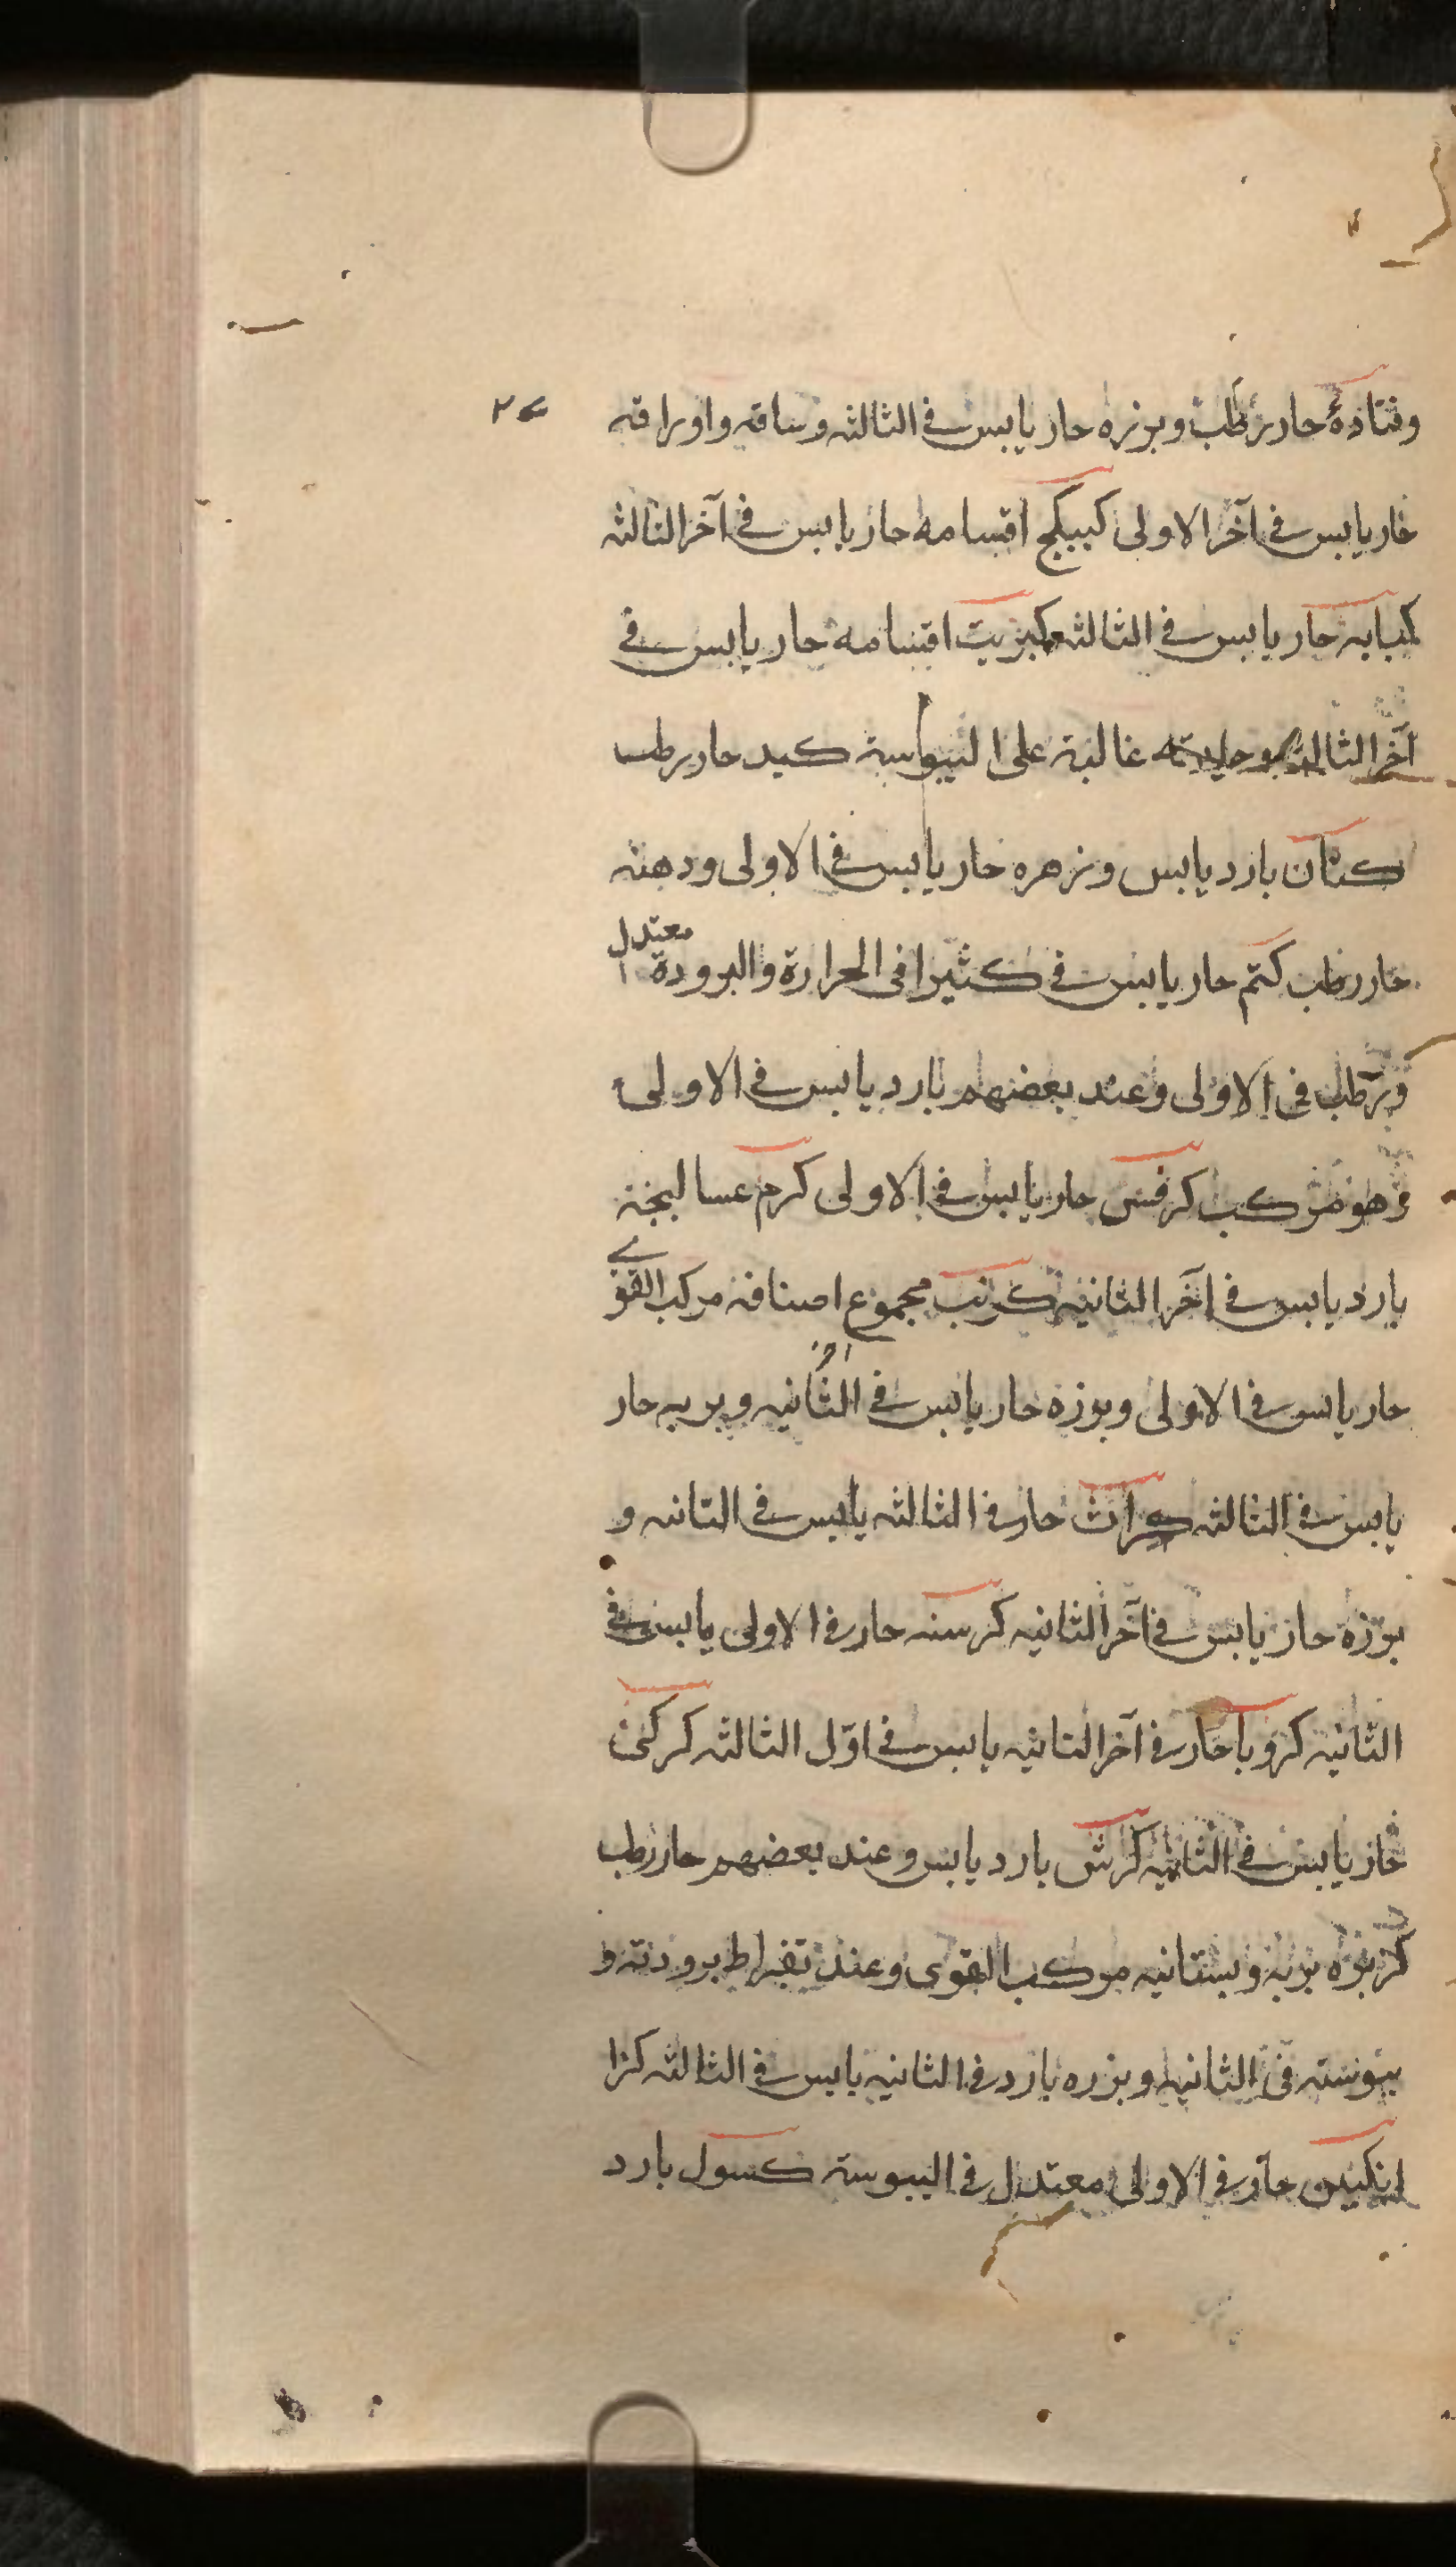 وقتاده حار رطب وبزره حار يابس في الثالثه وساقه واوراقه
٢٤
حار يابس في آخر الاولى كبيكج اقسامه حار يابس في آخر الثالثه
كبابه حار يابس في الثالثه كبريت اقسامه حار يابس في
آخر الثالثه غالبة على اليبوسة كبد حار رطب
كتان بارد يابس وزهره حار يابس في الاولى ودهنه
حار رطب كتم حار يابس في كثيرا في الحرارة والبرودة معتدل
ورطب في الاولى وعند بعضهم بارد يابس في الاولى
وهو مركب كرفس حار يابس في الاولى كرم عساليجه
بارد يابس في آخر الثانيه كرنب مجموع اصنافه مركب القوى
حار يابس في الاولى وبوزه حار يابس في آخر الثانيه وبريه حار
يابس في الثالثه كراث حار في الثالثه يابس في الثانيه و
بوزه حار يابس في آخر الثانيه كرسنه حار في الاولى يابس في
الثانيه كرويا حار في آخر الثانيه يابس في اوّل الثالثه كركى
حار يابس في الثانيه كرش بارد يابس وعند بعضهم حار رطب
كزبره بريه وبستانيه مركب القوى وعند بقراط برودته و
يبوسته في الثانيه وبزره بارد في الثانيه يابس في الثالثه كزا
انكبين حار في الاولى معتدل في اليبوسة كسول بارد